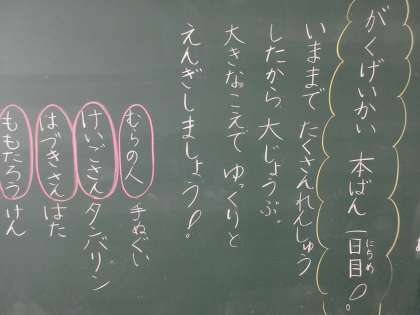 がくげいかい 本ばん 一日目!
にちめ
いままで たくさんれんしゅう
したから、大じょうぶ。
大きなこえで ゆっくりと
えんぎしましょう!
むらの人 手ぬぐい
けいごさん タンバリン
はづきさん はた
ももたろう けん